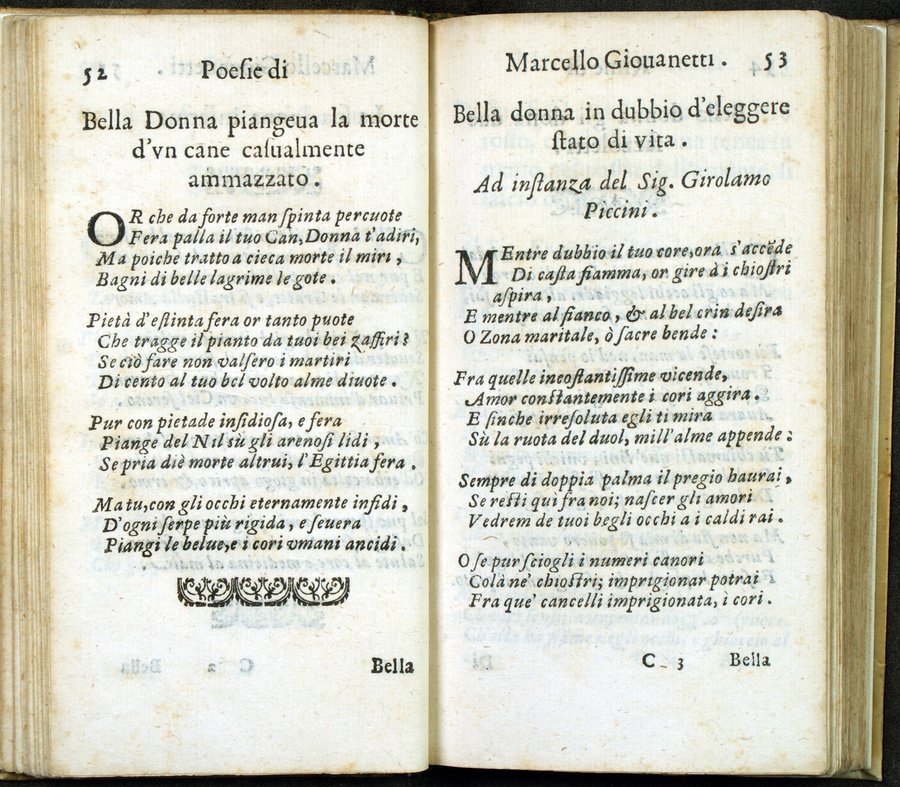 52 Poesie di
Bella Donna piangeua la morte
d'vn cane casualmente
ammazzato.
OR che da forte man spinta percuote
Fera palla il tuo Can, Donna t'adiri,
Ma poiche tratto a cieca morte il miri,
Bagni di belle lagrime le gote.
Pietà d'estinta fera or tanto puote
Che tragge il pianto da tuoi bei zaffiri?
Se ciò fare non valsero i martiri
Di cento al tuo bel volto alme diuote.
Pur con pietade insidiosa, e fera
Piange del Nil sù gli arenosi lidi,
Se pria diè morte altrui, l'Egittia fera.
Ma tu, con gli occhi eternamente infidi,
D'ogni serpe più rigida, e seuera
Piangi le belue, e i cori vmani ancidi.
Bella
Marcello Giouanetti. 53
Bella donna in dubbio d'eleggere
stato di vita.
Ad instanza del Sig. Girolamo
Piccini.
MEntre dubbio il tuo core, ora s'accẽde
Di casta fiamma, or gire à i chiostri
aspira,
E mentre al fianco, & al bel crin desira
O Zona maritale, ò sacre bende:
Fra quelle incostantissime vicende,
Amor constantemente i cori aggira.
E sinche irresoluta egli ti mira
Sù la ruota del duol, mill'alme appende:
Sempre di doppia palma il pregio haurai,
Se resti quì fra noi; nascer gli amori
Vedrem de tuoi begli occhi a i caldi rai.
O se pur sciogli i numeri canori
Colà ne' chiostri; imprigionar potrai
Fra que' cancelli imprigionata, i cori.
C 3 Bella